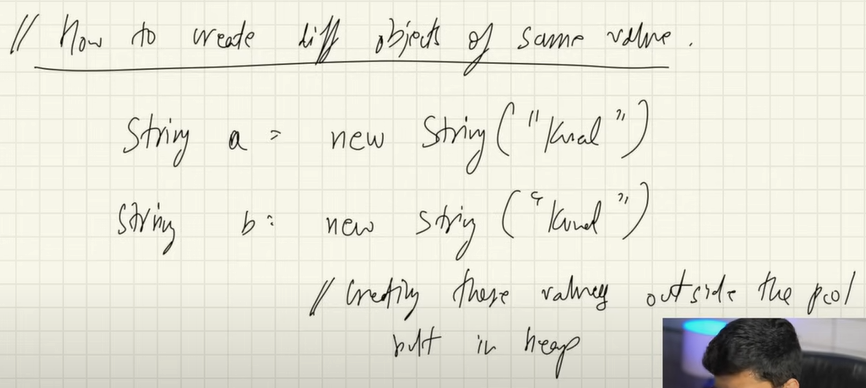 // How to create diff objects of same value.
String a = new String("Kunal")
String b = new String("Kunal")
// Creating these values outside the pool
but in heap